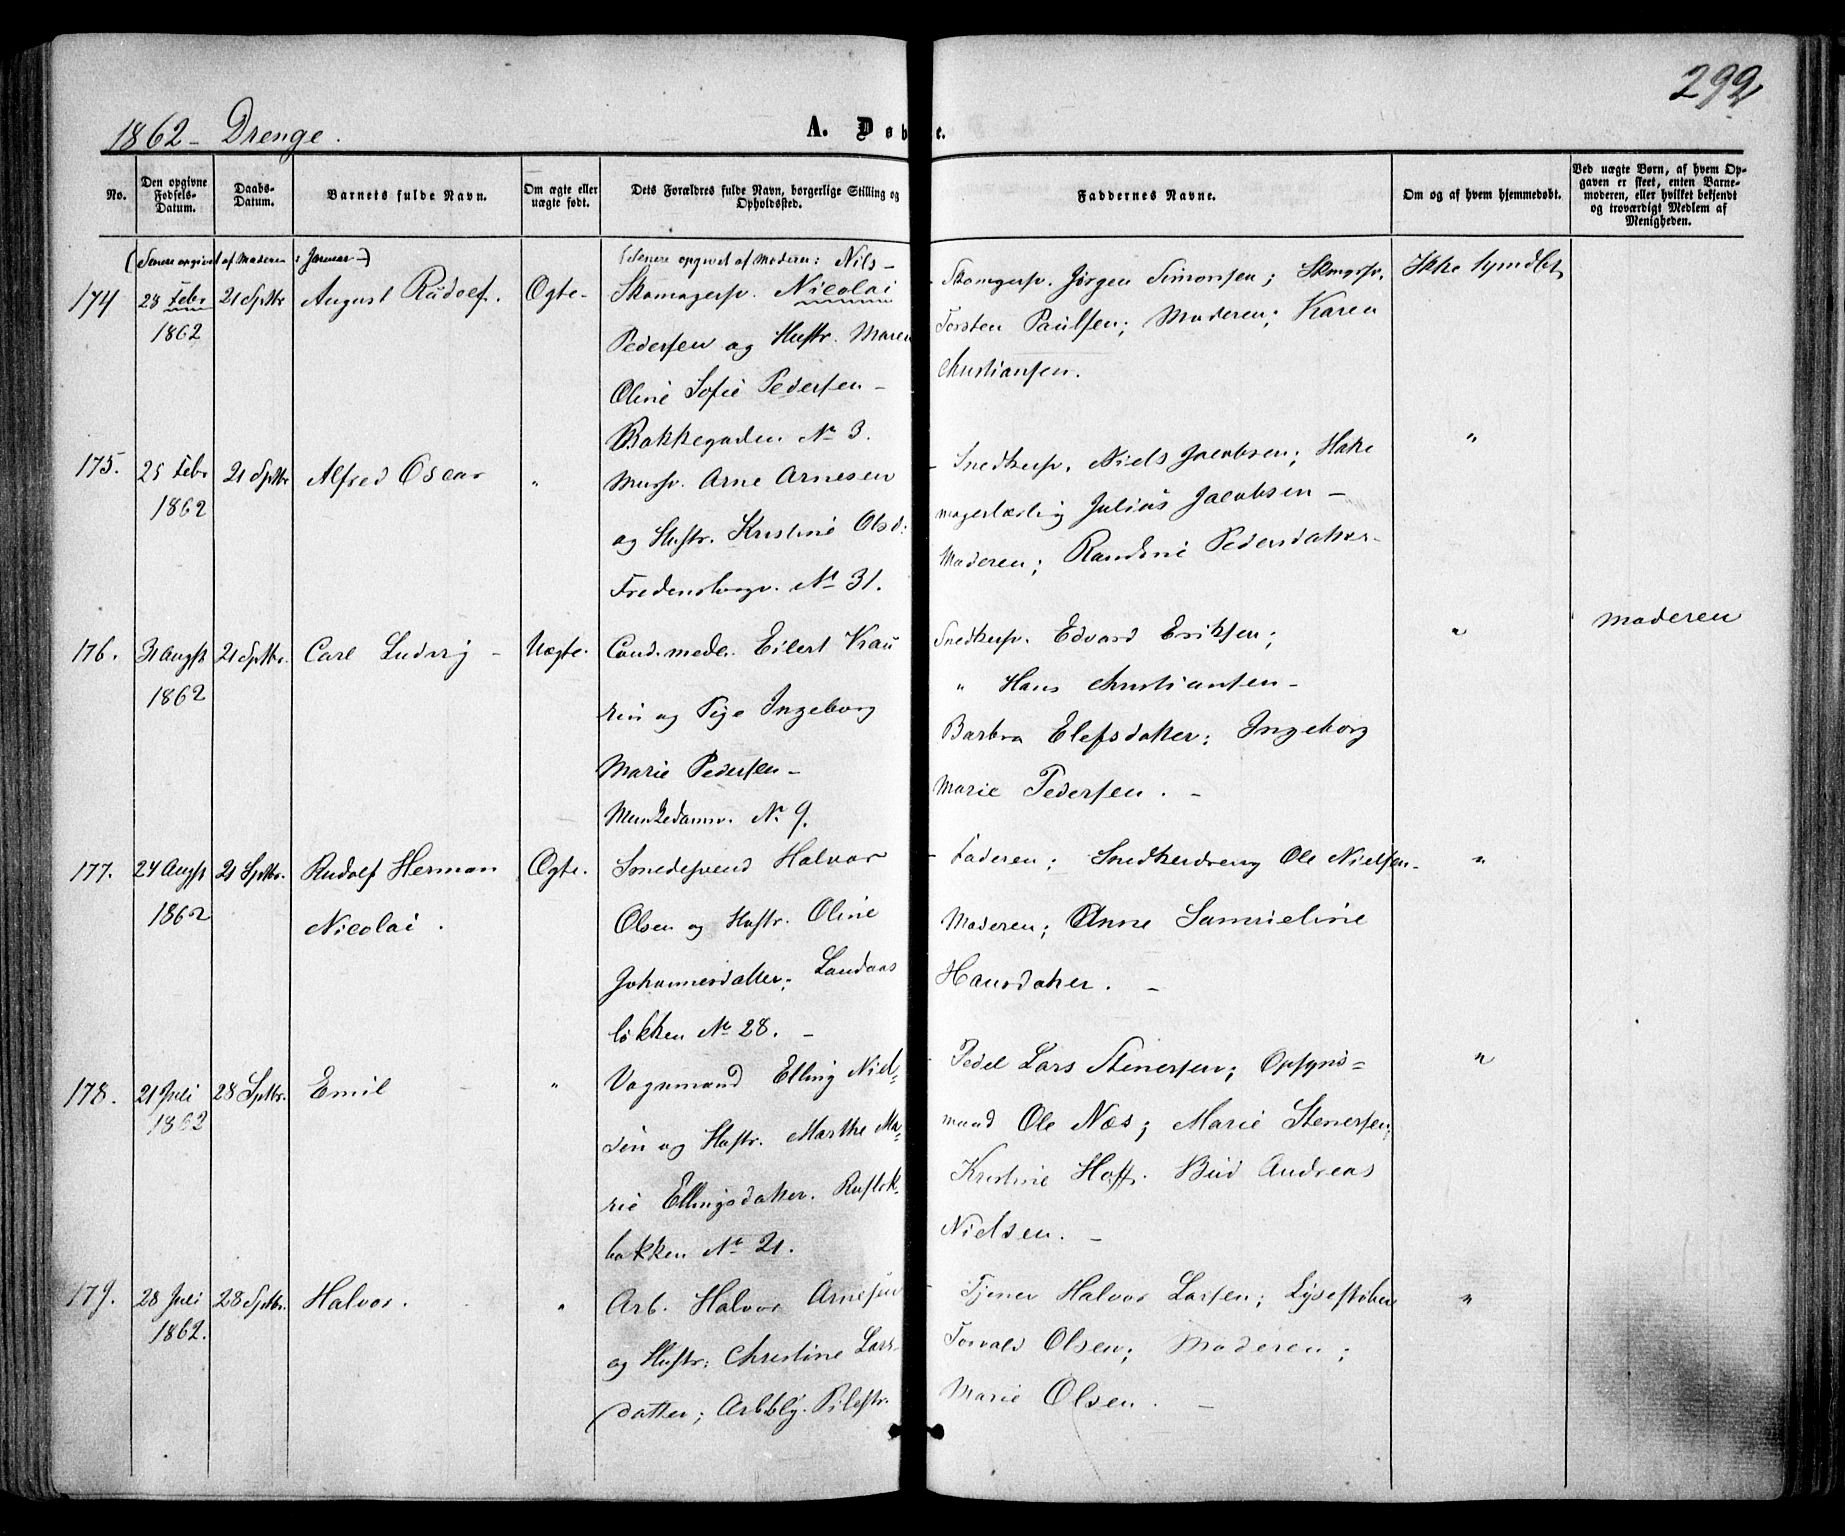 292
1862 - Drenge.
A. Døbte.
No.
Den opgivne Fødsels-Datum.
Daabs-Datum.
Barnets fulde Navn.
Om ægte eller uægte født.
Dets Forældres fulde Navn, borgerlige Stilling og Opholdssted.
Faddernes Navne.
Om og af hvem hjemmedøbt.
Ved uægte Børn, af hvem Opgaven er skeet, enten Barnemoderen, eller hvilket bekjendt og troværdigt Medlem af Menigheden.
(Senere opgivet af Moderen: Januar -)
(Senere opgivet af Moderen: Nils -
174 28 Febr 21 Sptbr August Rudolf. Ægte - Skomagersv. Nicolai - Skomgersv. Jørgen Simonsen; Skomgsv. Ikke hjmdbt
1862 Pedersen og Hustr. Maren Torsten Paulsen; Moderen; Karen
Oline Sofie Pedersen - Christiansen.
Bakkegaden No 3.
175. 25 Febr 21 Sptbr Alfred Oscar " Mursv. Arne Arnesen - Snedkersv. Niels Jacobsen; "
1862 og Hustr. Kristine Olsd: magerlærling Julius Jacobsen -
Fredensborgv. No 31. Moderen; Randine Pedersdatter -
176. 31 Augst 21 Sptbr. Carl Ludvig - Uægte. Cand. med. Eilert Snedkersv. Edvard Eriksen; " Moderen
1862 og Pige Ingeborg " Hans Christiansen -
Marie Pedersen - Barbra Elefsdatter; Ingeborg
Munkedamsv. No 9. Marie Pedersen. -
177. 24 Augst 21 Sptbr. Rudolf Herman Ægte. Smedesvend Halvor - Faderen; Snedkerdreng Ole Nielsen - "
1862 Nicolai. Olsen og Hustr. Oline Moderen; Anne
Johannesdatter; Landaas Hansdatter. -
løkken No 28. -
178. 21 Juli 28 Sptbr. Emil " Vognmand Elling Niel= - Pedel Lars Stenersen; Opsyns=
1862 sen og Hustr. Marthe Ma= mand Ole Næs; Marie Stenersen; "
rie Ellingsdatter. Rusløk= Kristine Hoff. Bud Andreas
bakken No 21. Nielsen. -
179. 28 Juli 28 Sptbr. Halvor. " Arb. Halvor Arnesen - Tjener Halvor Larsen; Lysestøber "
1862. og Hustr: Christine Lars- Torvald Olsen; Moderen;
datter; Arbblg. Pilestr. Marie Olsen. -